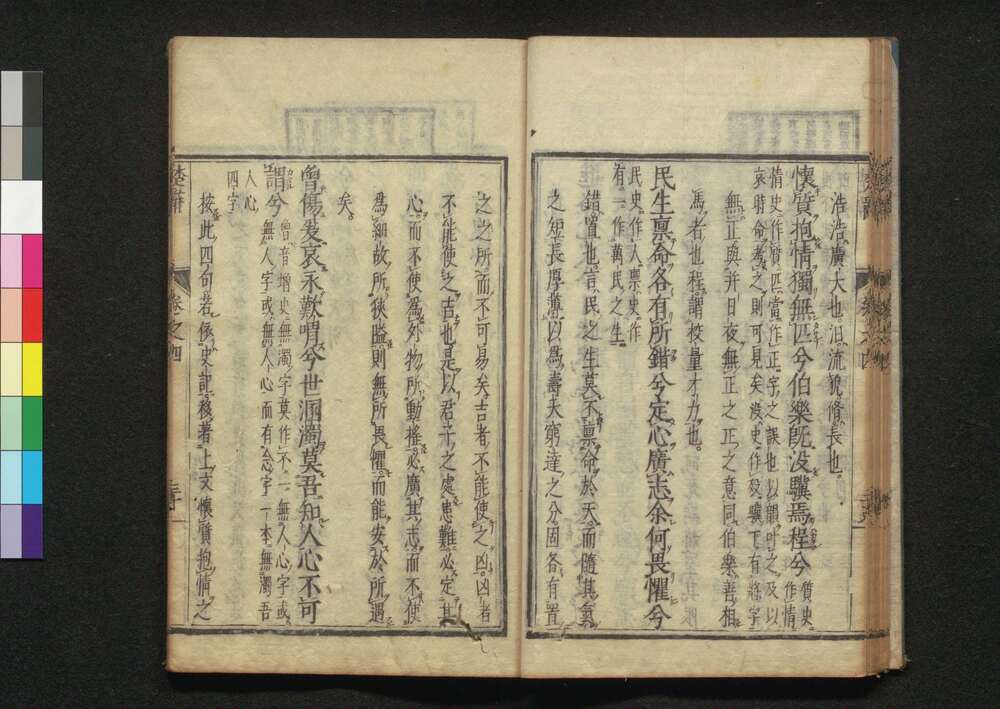 浩浩廣大也汩流貌脩長也
懷質抱情獨無匹兮伯樂旣沒驥焉程兮質史作情
情史作質匹當作正字之誤也以韻叶之及以
哀時命考之則可見矣沒史作歿驥下有將字
無正與幷日夜無正之正之意同伯樂善相
馬者也程謂校量才力也
民生稟命各有所錯兮定心廣志余何畏懼兮
民史作人稟史作
有一作萬民之生
錯置也言民之生莫不稟命於天而隨其氣
之短長厚薄以爲壽夭窮達之分固各有置
之之所而不可易矣吉者不能使之凶凶者
不能使之吉也是以君子之處患難必定其
心而不使爲外物所動搖必廣其志而不使
爲細故所狹隘則無所畏懼而能安於所遇
矣
曾傷爰哀永歎喟兮世溷濁莫吾知人心不可
謂兮曾音增史無濁字莫作不一無人心字或
無人字或無人心而有念字一本無濁吾
人心
四字
按此四句若係史記移著上文懷質抱情之
卷之四